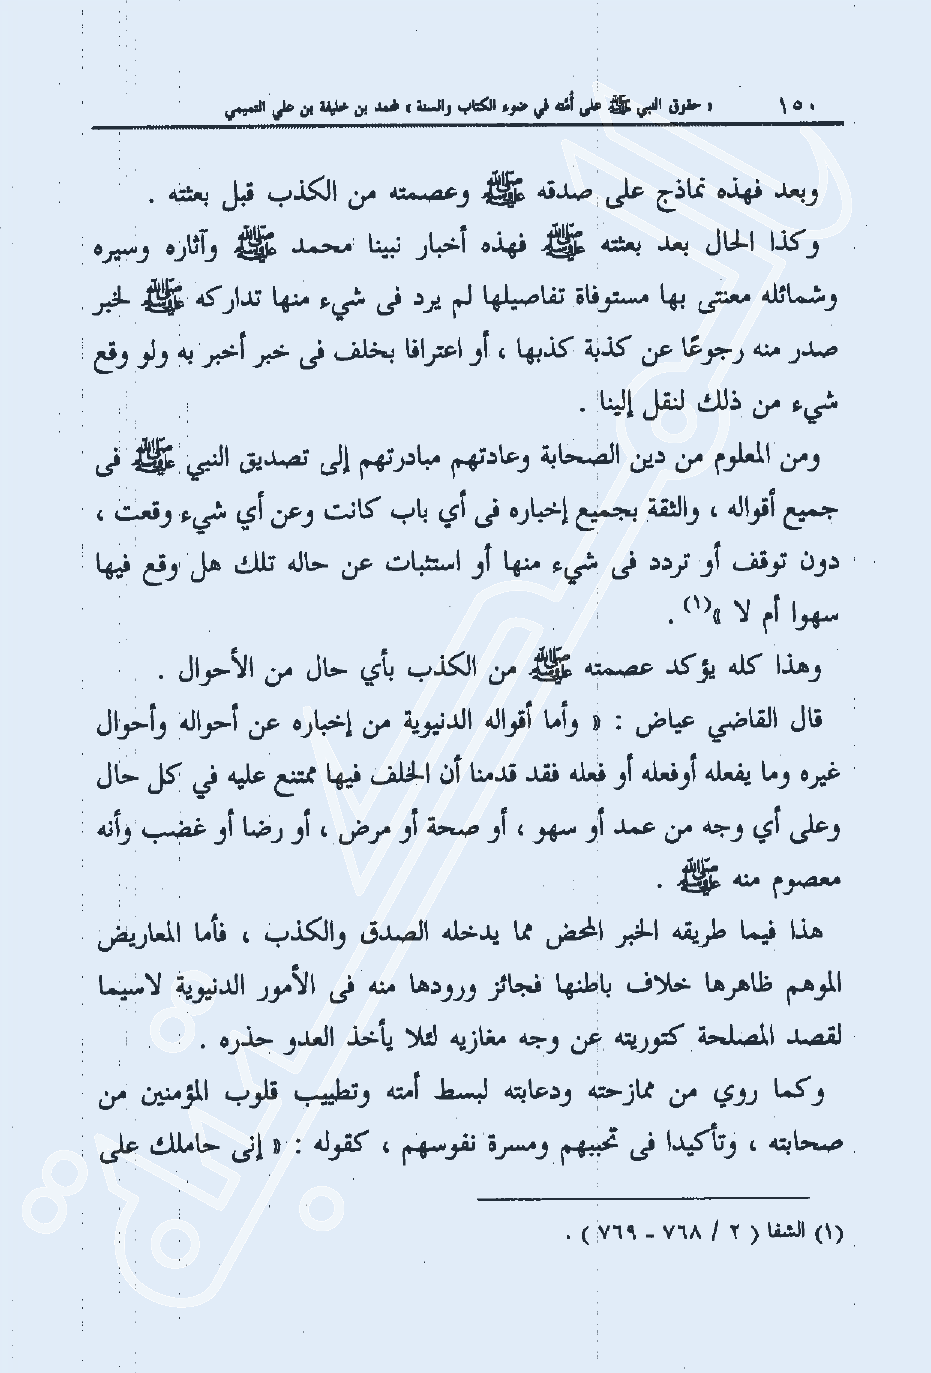 ١٥٠ « حقوق النبي ﷺ على أمته في ضوء الكتاب والسنة » محمد بن خليفة بن علي التميمي
وبعد فهذه نماذج على صدقه ﷺ وعصمته من الكذب قبل بعثته .
وكذا الحال بعد بعثته ﷺ فهذه أخبار نبينا محمد ﷺ وآثاره وسيره
وشمائله معتنى بها مستوفاة تفاصيلها لم يرد فى شيء منها تداركه ﷺ لخبر
صدر منه رجوعًا عن كذبة كذبها ، أو اعترافا بخلف فى خبر أخبر به ولو وقع
شيء من ذلك لنقل إلينا .
ومن المعلوم من دين الصحابة وعادتهم مبادرتهم إلى تصديق النبي ﷺ فى
جميع أقواله ، والثقة بجميع إخباره فى أي باب كانت وعن أي شيء وقعت ،
دون توقف أو تردد فى شيء منها أو استثبات عن حاله تلك هل وقع فيها
سهوا أم لا »(١) .
وهذا كله يؤكد عصمته ﷺ من الكذب بأي حال من الأحوال .
قال القاضي عياض : « وأما أقواله الدنيوية من إخباره عن أحواله وأحوال
غيره وما يفعله أوفعله أو فعله فقد قدمنا أن الخلف فيها ممتنع عليه في كل حال
وعلى أي وجه من عمد أو سهو ، أو صحة أو مرض ، أو رضا أو غضب وأنه
معصوم منه ﷺ .
هذا فيما طريقه الخبر المحض مما يدخله الصدق والكذب ، فأما المعاريض
الموهم ظاهرها خلاف باطنها فجائز ورودها منه فى الأمور الدنيوية لاسيما
لقصد المصلحة كتوريته عن وجه مغازيه لئلا يأخذ العدو حذره .
وكما روي من ممازحته ودعابته لبسط أمته وتطييب قلوب المؤمنين من
صحابته ، وتأكيدا فى تحببهم ومسرة نفوسهم ، كقوله : « إنى حاملك على
(١) الشفا ( ٢ / ٧٦٨ - ٧٦٩ ) .